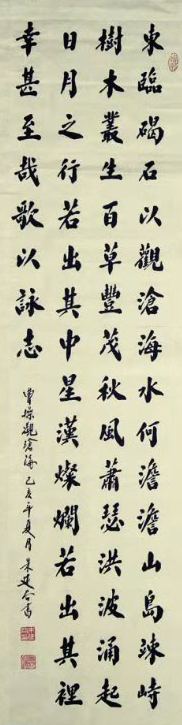 東臨碣石以觀滄海水何澹澹山島竦峙
樹木叢生百草豐茂秋風蕭瑟洪波涌起
日月之行若出其中星漢燦爛若出其裡
幸甚至哉歌以詠志
曹操觀滄海 己亥年夏月